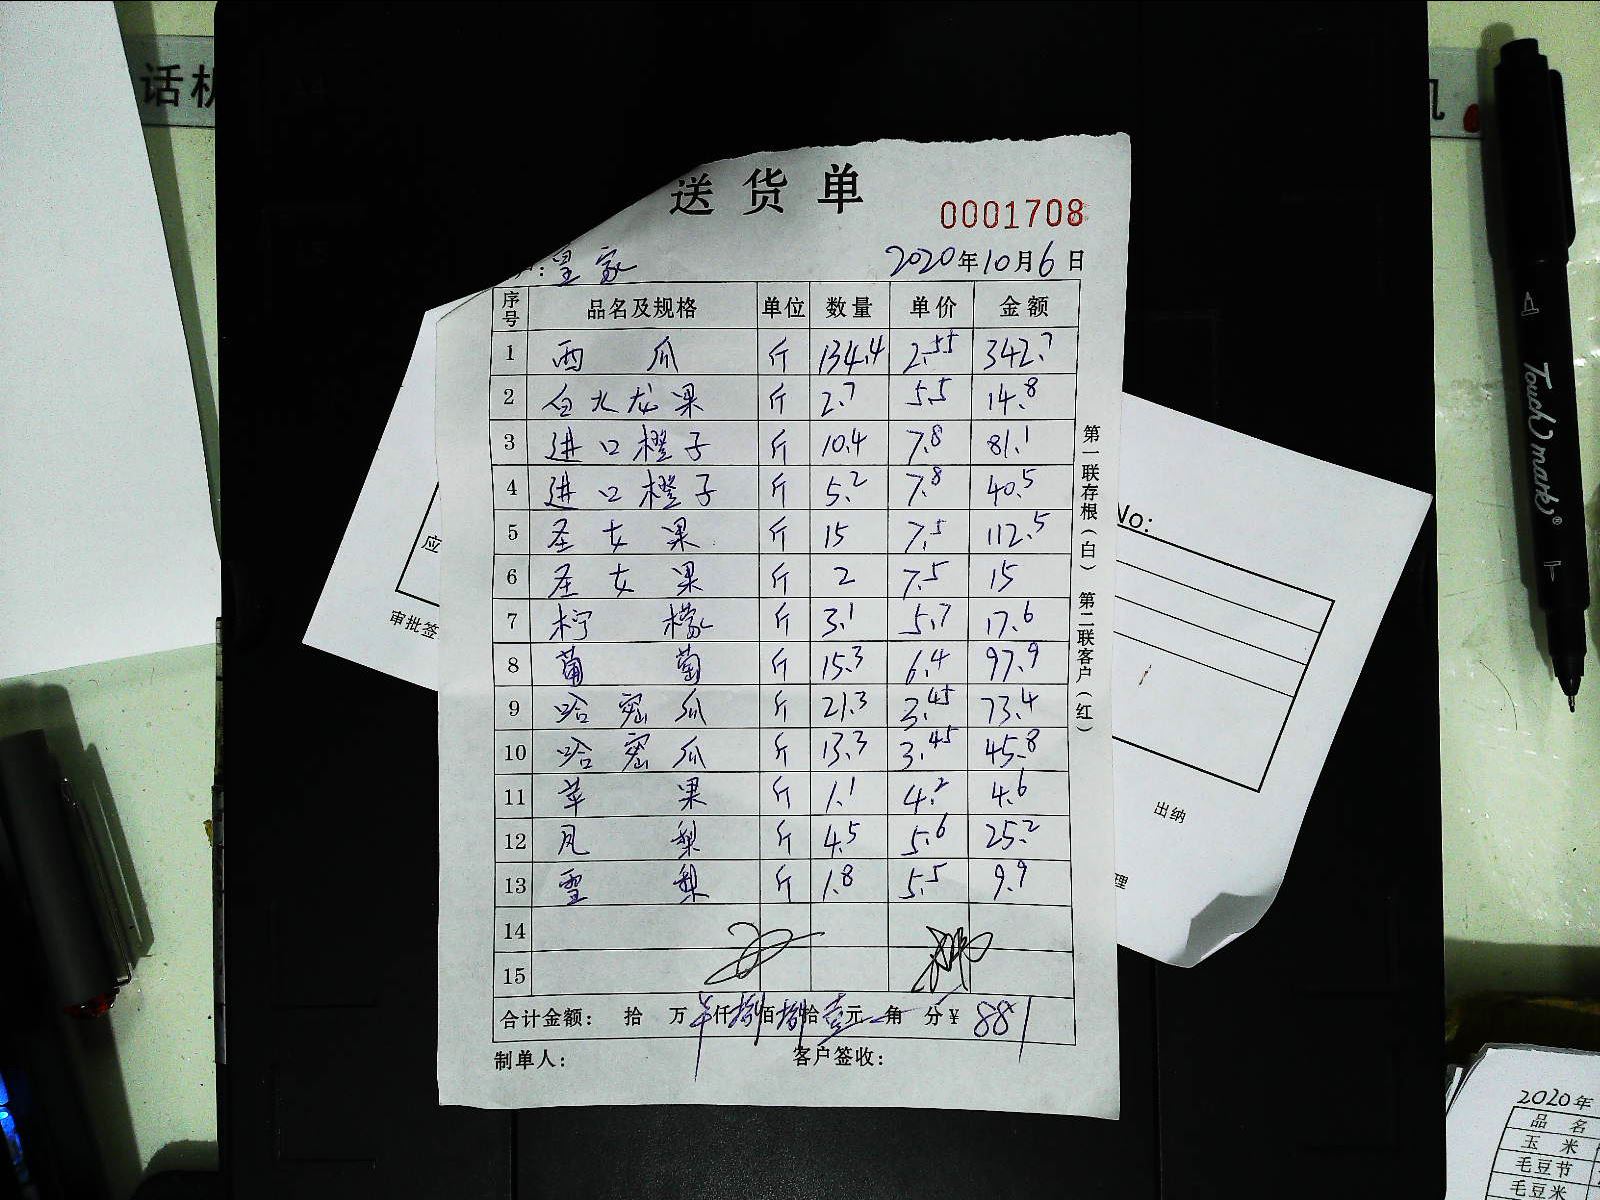 话机
送货单
0001708
：皇家 2020年10月6日
序号 品名及规格 单位 数量 单价 金额
1 西瓜 斤 134.4 2.55 342.7
2 白火龙果 斤 2.7 5.5 14.8
3 进口橙子 斤 10.4 7.8 81.1
4 进口橙子 斤 5.2 7.8 40.5
5 圣女果 斤 15 7.5 112.5
6 圣女果 斤 2 7.5 15
7 柠檬 斤 3.1 5.7 17.6
8 葡萄 斤 15.3 6.4 97.9
9 哈密瓜 斤 21.3 3.45 73.4
10 哈密瓜 斤 13.3 3.45 45.8
11 苹果 斤 1.1 4.2 4.6
12 凤梨 斤 4.5 5.6 25.2
13 雪梨 斤 1.8 5.5 9.9
14
15
合计金额： 拾 万 仟捌佰捌拾壹元 角 分￥ 881
制单人： 客户签收：
第一联存根（白） 第二联客户（红）
应
审批签
No:
出纳
理
Touch mark®
T
2020年
品名
玉米
毛豆节
毛豆米